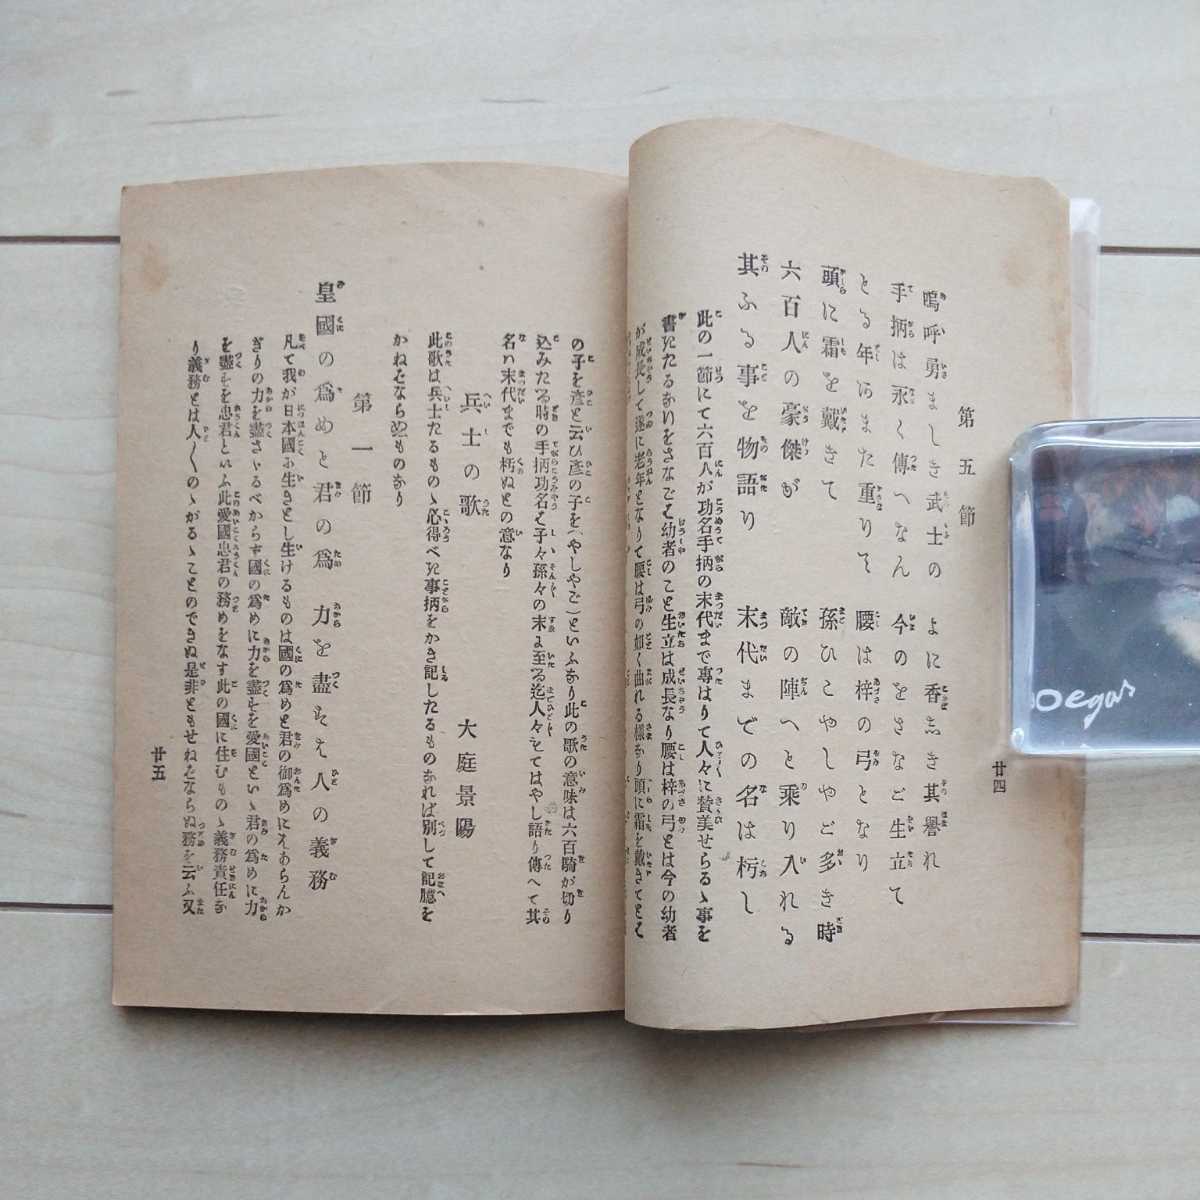 第五節
嗚呼勇ましき武士の よに香しき其譽れ
手柄は永く傳へなん 今のをさなご生立て
とる年のまた重りて 腰は梓の弓となり
頭に霜を戴きて 孫ひこやしやご多き時
六百人の豪傑が 敵の陣へと乘り入れる
其ふる事を物語り 末代までの名は朽し
此の一節にて六百人が功名手柄の末代まで專はりて人々に賛美せらるゝ事を
書きたるなりをさなごとは幼者のこと生立は成長なり腰は梓の弓とは今の幼者
が成長して遂に老年となりて腰は弓の如く曲れる樣なり頭に霜を戴きてとは
廿四
の子を彦と云ひ彦の子を(やしやご)といふなり此の歌の意味は六百騎が切り
込みたる時の手柄功名を子々孫々の末に至る迄人々をてはやし語り傳へて其
名ハ末代までも朽ぬとの意なり
兵士の歌
大庭景陽
此歌は兵士たるものゝ心得べき事柄をかき記したるものなれば別して記臆を
かねをならぬものなり
第一節
皇國の爲めと君の爲 力を盡すは人の義務
凡て我が日本國に生きとし生けるものは國の爲めと君の御爲めにはあらんか
ぎりの力を盡さゞるべからず國の爲めに力を盡すを愛國といゝ君の爲めに力
を盡すを忠君といふ此愛國忠君の務めをなす此の國に住むものゝ義務責任な
り義務とは人〱のゝがるゝことのできぬ是非ともせねをならぬ務を云ふ又
廿五
oegas